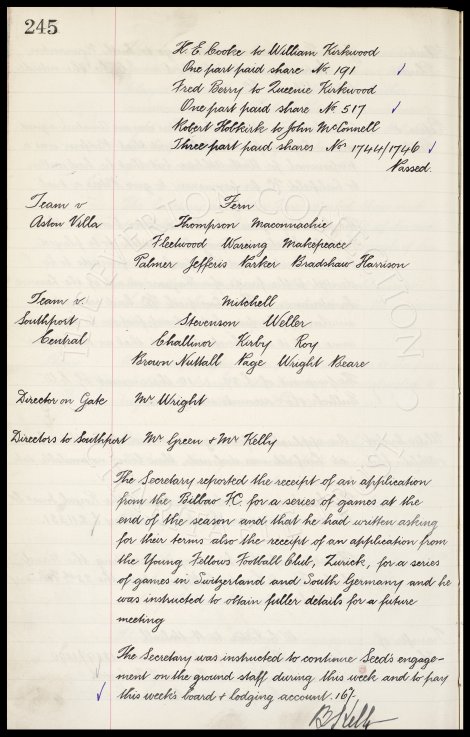 245
H. E. Cooke to William Kirkwood
One part paid share No. 191
Fred Berry to Queenie Kirkwood
One part paid share No. 517
Robert Holbkirk to John McConnell
Three part paid shares Nos 1744/1746
Passed.
Team v Fern
Aston Villa Thompson Maconnachie
Fleetwood Wareing Makepeace
Palmer Jefferis Parker Bradshaw Harrison
Team v. Mitchell
Southport Stevenson Weller
Central Challinor Kirby Roy
Brown Nuttall Page Wright Beare
Director on Gate Mr Wright
Directors to Southport Mr Green & Mr Kelly
The Secretary reported the receipt of an application
from the Bilbao FC, for a series of games at the
end of the season and that he had written asking
for their terms also the receipt of an application from
the Young Fellows Football Club, Zurick, for a series
of games in Switzerland and South Germany and he
was instructed to obtain fuller details for a future
meeting
The Secretary was instructed to continue Seed's engage-
ment on the ground staff during this week and to pay
this week's board & lodging account. 16/-
B Kelly